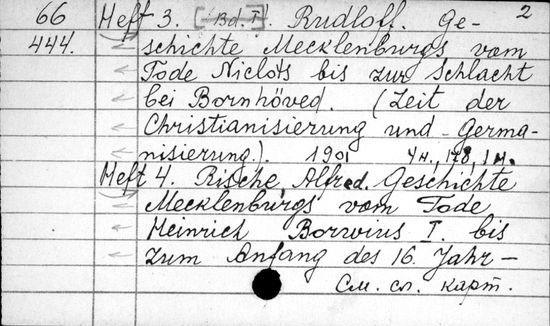 66 Heft 3. [Bd. I]. Rudloff. Ge- 2
444. schichte Mecklenburgs vom
Tode Niclots bis zur Schlacht
bei Bornhöved. (Zeit der
Christianisierung und Germa-
nisierung). 1901 4н., 178, 1 н.
Heft 4. Rische, Alfred. Geschichte
Mecklenburgs vom Tode
Heinrich Borwins I. bis
zum Anfang des 16. Jahr-
См. сл. карт.